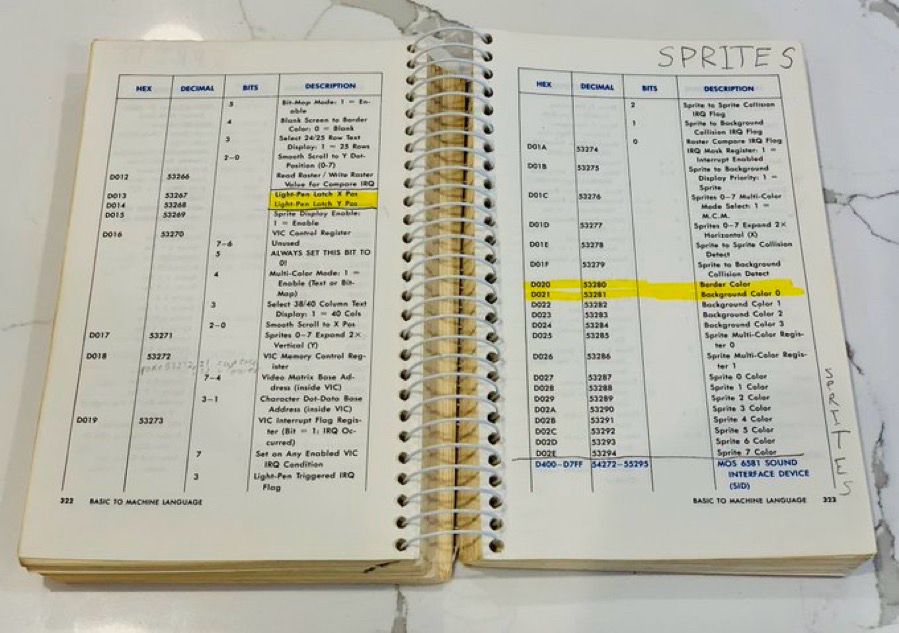 HEX DECIMAL BITS DESCRIPTION
5 Bit-Map Mode: 1 = En-
able
4 Blank Screen to Border
Color: 0 = Blank
3 Select 24/25 Row Text
Display: 1 = 25 Rows
2-0 Smooth Scroll to Y Dot-
Position (0-7)
D012 53266 Read Raster/Write Raster
Value for Compare IRQ
D013 53267 Light-Pen Latch X Pos
D014 53268 Light-Pen Latch Y Pos
D015 53269 Sprite Display Enable:
1 = Enable
D016 53270 VIC Control Register
7-6 Unused
5 ALWAYS SET THIS BIT TO
0!
4 Multi-Color Mode: 1 =
Enable (Text or Bit-
Map)
3 Select 38/40 Column Text
Display: 1 = 40 Cols
2-0 Smooth Scroll to X Pos
D017 53271 Sprites 0-7 Expand 2×
Vertical (Y)
D018 53272 VIC Memory Control Reg-
ister
7-4 Video Matrix Base Ad-
dress (inside VIC)
3-1 Character Dot-Data Base
Address (inside VIC)
D019 53273 VIC Interrupt Flag Regis-
ter (Bit = 1: IRQ Oc-
curred)
7 Set on Any Enabled VIC
IRQ Condition
3 Light-Pen Triggered IRQ
Flag
322 BASIC TO MACHINE LANGUAGE
SPRITES
HEX DECIMAL BITS DESCRIPTION
2 Sprite to Sprite Collision
IRQ Flag
1 Sprite to Background
Collision IRQ Flag
0 Raster Compare IRQ Flag
D01A 53274 IRQ Mask Register: 1 =
Interrupt Enabled
D01B 53275 Sprite to Background
Display Priority: 1 =
Sprite
D01C 53276 Sprites 0-7 Multi-Color
Mode Select: 1 =
M.C.M.
D01D 53277 Sprites 0-7 Expand 2×
Horizontal (X)
D01E 53278 Sprite to Sprite Collision
Detect
D01F 53279 Sprite to Background
Collision Detect
D020 53280 Border Color
D021 53281 Background Color 0
D022 53282 Background Color 1
D023 53283 Background Color 2
D024 53284 Background Color 3
D025 53285 Sprite Multi-Color Regis-
ter 0
D026 53286 Sprite Multi-Color Regis-
ter 1
D027 53287 Sprite 0 Color
D028 53288 Sprite 1 Color
D029 53289 Sprite 2 Color
D02A 53290 Sprite 3 Color
D02B 53291 Sprite 4 Color
D02C 53292 Sprite 5 Color
D02D 53293 Sprite 6 Color
D02E 53294 Sprite 7 Color
D400-D7FF 54272-55295 MOS 6581 SOUND
INTERFACE DEVICE
(SID)
SPRITES
BASIC TO MACHINE LANGUAGE 323